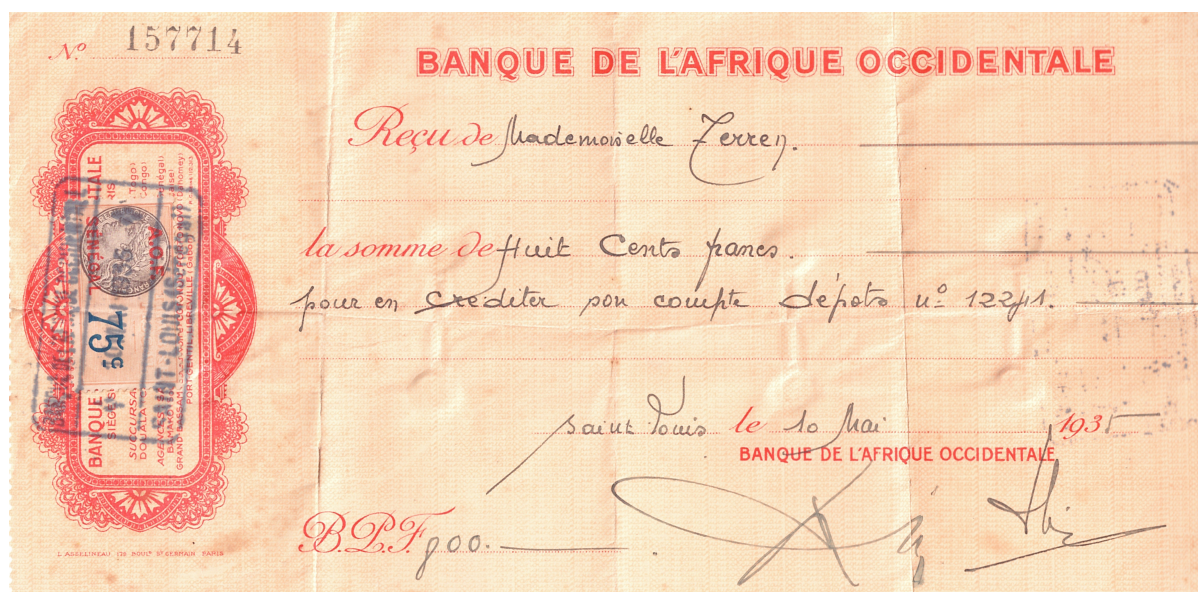 Nº 157714
BANQUE DE L'AFRIQUE OCCIDENTALE
Reçu de Mademoiselle Zerren.
la somme de Huit Cents francs.
pour en créditer son compte dépots nº 12241.
Saint Louis le 10 Mai 1935
BANQUE DE L'AFRIQUE OCCIDENTALE
B.P.F. 800.
BANQUE
SAINT-LOUIS
L. ASSELINEAU 138 BOULᵈ Sᵗ GERMAIN PARIS